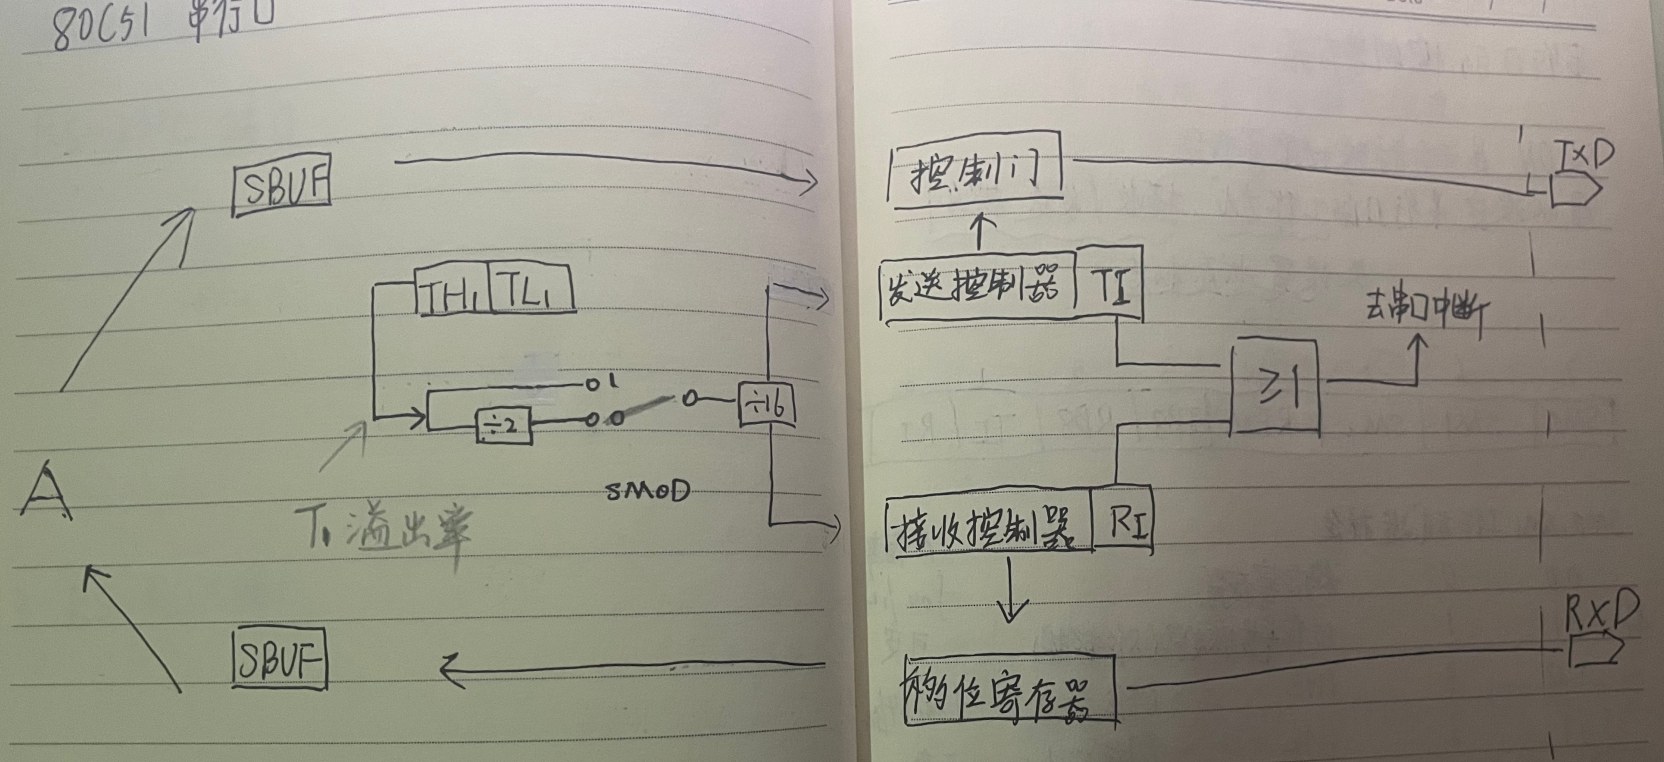 80C51 串行口
SBUF
TH1 TL1
1
÷2
0
÷16
SMOD
T1溢出率
A
SBUF
控制门
TXD
发送控制器 TI
去串口中断
≥1
接收控制器 RI
RXD
移位寄存器